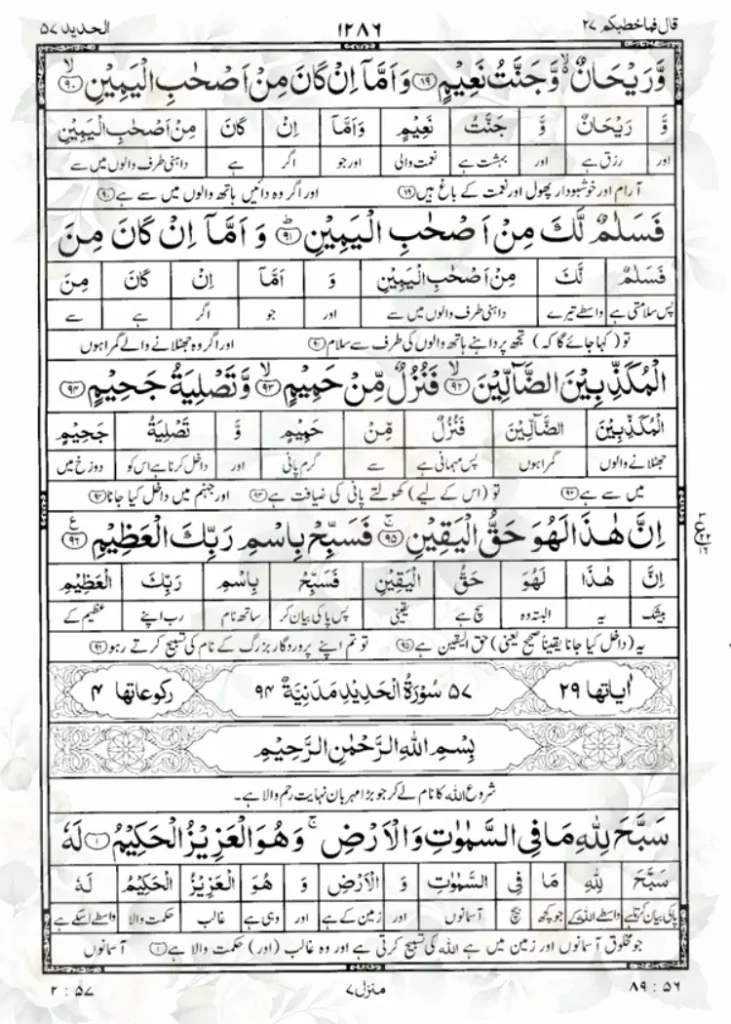 قال فما خطبکم ۲۷ ۱۲۸۶ الحدید ۵۷
وَّرَیْحَانٌ ۙ۬ وَّجَنَّتُ نَعِیْمٍ ﴿۸۹﴾ وَاَمَّاۤ اِنْ کَانَ مِنْ اَصْحٰبِ الْیَمِیْنِ ۙ﴿۹۰﴾
وَّ رَیْحَانٌ وَّ جَنَّتُ نَعِیْمٍ وَاَمَّاۤ اِنْ کَانَ مِنْ اَصْحٰبِ الْیَمِیْنِ
اور رزق ہے اور بہشت ہے نعمت والی اور جو اگر ہے داہنی طرف والوں میں سے
آرام اور خوشبودار پھول اور نعمت کے باغ ہیں ﴿۸۹﴾ اور اگر وہ دائیں ہاتھ والوں میں سے ہے ﴿۹۰﴾
فَسَلٰمٌ لَّکَ مِنْ اَصْحٰبِ الْیَمِیْنِ ﴿ؕ۹۱﴾ وَ اَمَّاۤ اِنْ کَانَ مِنَ
فَسَلٰمٌ لَّکَ مِنْ اَصْحٰبِ الْیَمِیْنِ وَ اَمَّاۤ اِنْ کَانَ مِنَ
پس سلامتی ہے واسطے تیرے داہنی طرف والوں میں سے اور جو اگر ہے سے
تو (کہا جائے گا کہ) تجھ پر داہنے ہاتھ والوں کی طرف سے سلام ﴿۹۱﴾ اور اگر وہ جھٹلانے والے گمراہوں
الْمُکَذِّبِیْنَ الضَّآلِّیْنَ ۙ﴿۹۲﴾ فَنُزُلٌ مِّنْ حَمِیْمٍ ۙ﴿۹۳﴾ وَّتَصْلِیَۃُ جَحِیْمٍ ﴿۹۴﴾
الْمُکَذِّبِیْنَ الضَّآلِّیْنَ فَنُزُلٌ مِّنْ حَمِیْمٍ وَّ تَصْلِیَۃُ جَحِیْمٍ
جھٹلانے والوں گمراہوں پس مہمانی ہے سے گرم پانی اور داخل کرنا ہے اس کو دوزخ میں
میں سے ہے ﴿۹۲﴾ تو (اس کے لیے) کھولتے پانی کی ضیافت ہے ﴿۹۳﴾ اور جہنم میں داخل کیا جانا ﴿۹۴﴾
اِنَّ ہٰذَا لَہُوَ حَقُّ الْیَقِیْنِ ﴿ۚ۹۵﴾ فَسَبِّحْ بِاسْمِ رَبِّکَ الْعَظِیْمِ ﴿۹۶﴾ ع ۳ ۲۲ ۱۶
اِنَّ ہٰذَا لَہُوَ حَقُّ الْیَقِیْنِ فَسَبِّحْ بِاسْمِ رَبِّکَ الْعَظِیْمِ
بیشک یہ البتہ وہ سچ ہے یقینی پس پاکی بیان کر ساتھ نام رب اپنے عظیم کے
یہ (داخل کیا جانا یقیناً صحیح یعنی) حق الیقین ہے ﴿۹۵﴾ تو تم اپنے پروردگار بزرگ کے نام کی تسبیح کرتے رہو ﴿۹۶﴾
اٰیاتها ۲۹ ۵۷ سُوْرَۃُ الْحَدِیْدِ مَدَنِیَّۃٌ ۹۴ رکوعاتها ۴
بِسْمِ اللّٰہِ الرَّحْمٰنِ الرَّحِیْمِ
شروع اللہ کا نام لے کر جو بڑا مہربان نہایت رحم والا ہے۔
سَبَّحَ لِلّٰہِ مَا فِی السَّمٰوٰتِ وَالْاَرْضِ ۚ وَہُوَ الْعَزِیْزُ الْحَکِیْمُ ﴿۱﴾ لَہٗ
سَبَّحَ لِلّٰہِ مَا فِی السَّمٰوٰتِ وَ الْاَرْضِ وَ ہُوَ الْعَزِیْزُ الْحَکِیْمُ لَہٗ
پاکی بیان کرتا ہے واسطے اللہ کے جو کچھ بیچ آسمانوں اور زمین کے ہے اور وہی ہے غالب حکمت والا واسطے اسکے ہے
جو مخلوق آسمانوں اور زمین میں ہے اللہ کی تسبیح کرتی ہے اور وہ غالب (اور) حکمت والا ہے ﴿۱﴾ آسمانوں
۸۹ : ۵۶ منزل ۷ ۲ : ۵۷